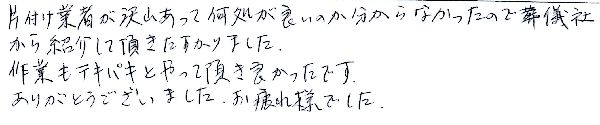 片付け業者が沢山あって何処が良いのか分からなかったので葬儀社
から紹介して頂きたすかりました.
作業もテキパキとやって頂き良かったです.
ありがとうございました.お疲れ様でした.